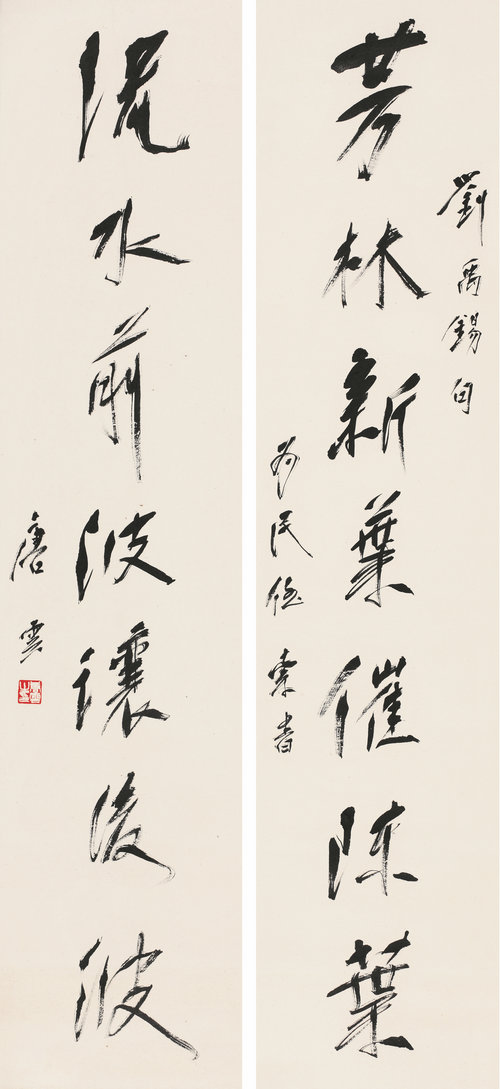 劉禹錫句
芳林新葉催陳葉
為民德索書
流水前波讓後波
唐雲